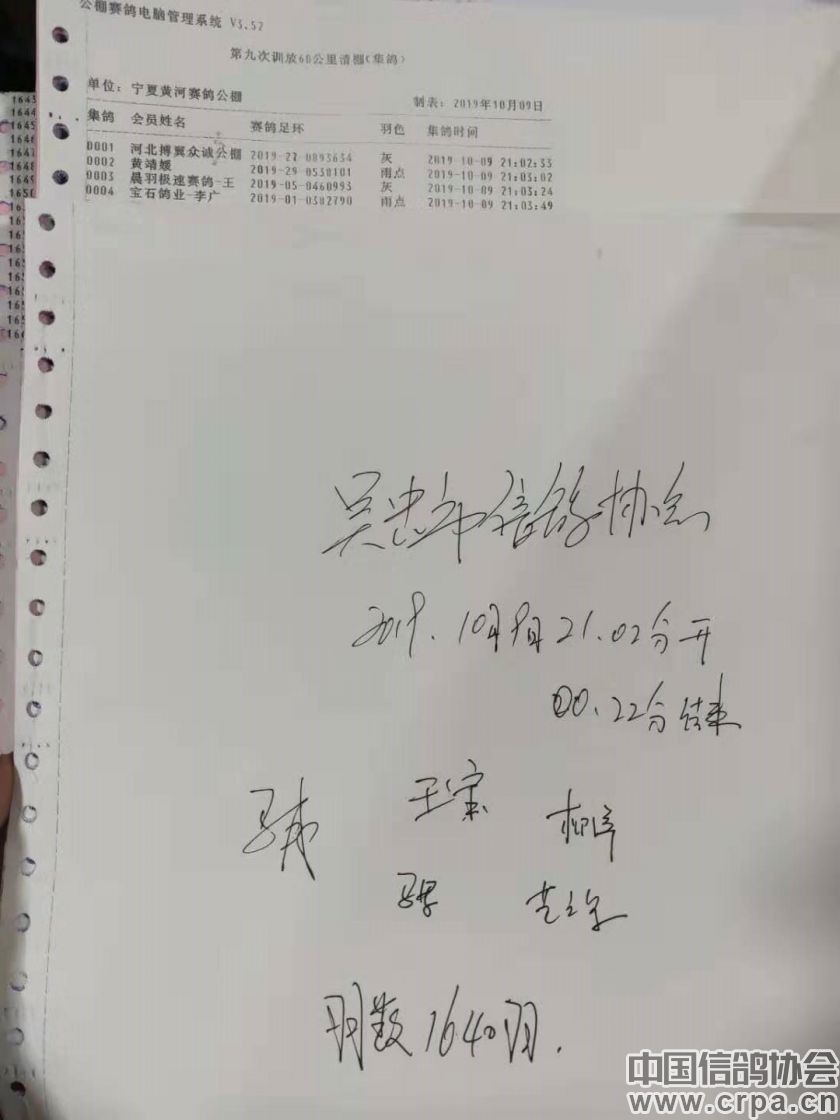 公棚赛鸽电脑管理系统 V3.52
第九次训放60公里清棚(集鸽)
单位: 宁夏黄河赛鸽公棚 制表: 2019年10月09日
集鸽 会员姓名 赛鸽足环 羽色 集鸽时间
0001 河北搏翼众诚公棚 2019-27-0893634 灰 2019-10-09 21:02:33
0002 黄靖媛 2019-29-0538101 雨点 2019-10-09 21:03:02
0003 晨羽极速赛鸽-王 2019-05-0460993 灰 2019-10-09 21:03:24
0004 宝石鸽业-李广 2019-01-0382790 雨点 2019-10-09 21:03:49
1644
1646
1647
1648
1649
1650
吴忠市信鸽协会
2019.10月9日21.02分开
00.22分结束
王宝
羽数1640羽.
中国信鸽协会
www.crpa.cn